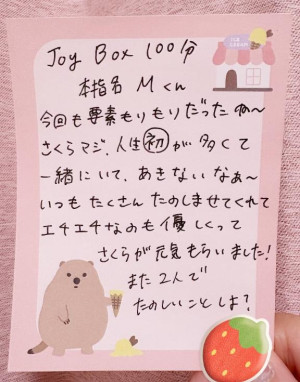 ICE CREAM
Joy Box 100分
本指名 Mくん
今回も要素もりもりだったね〜
さくらマジ、人生初が多くて
一緒にいて、あきないなぁ〜
いつもたくさんたのしませてくれて
エチエチなのも優しくって
さくらが元気もらいました!
また2人で
たのしいことしよ?